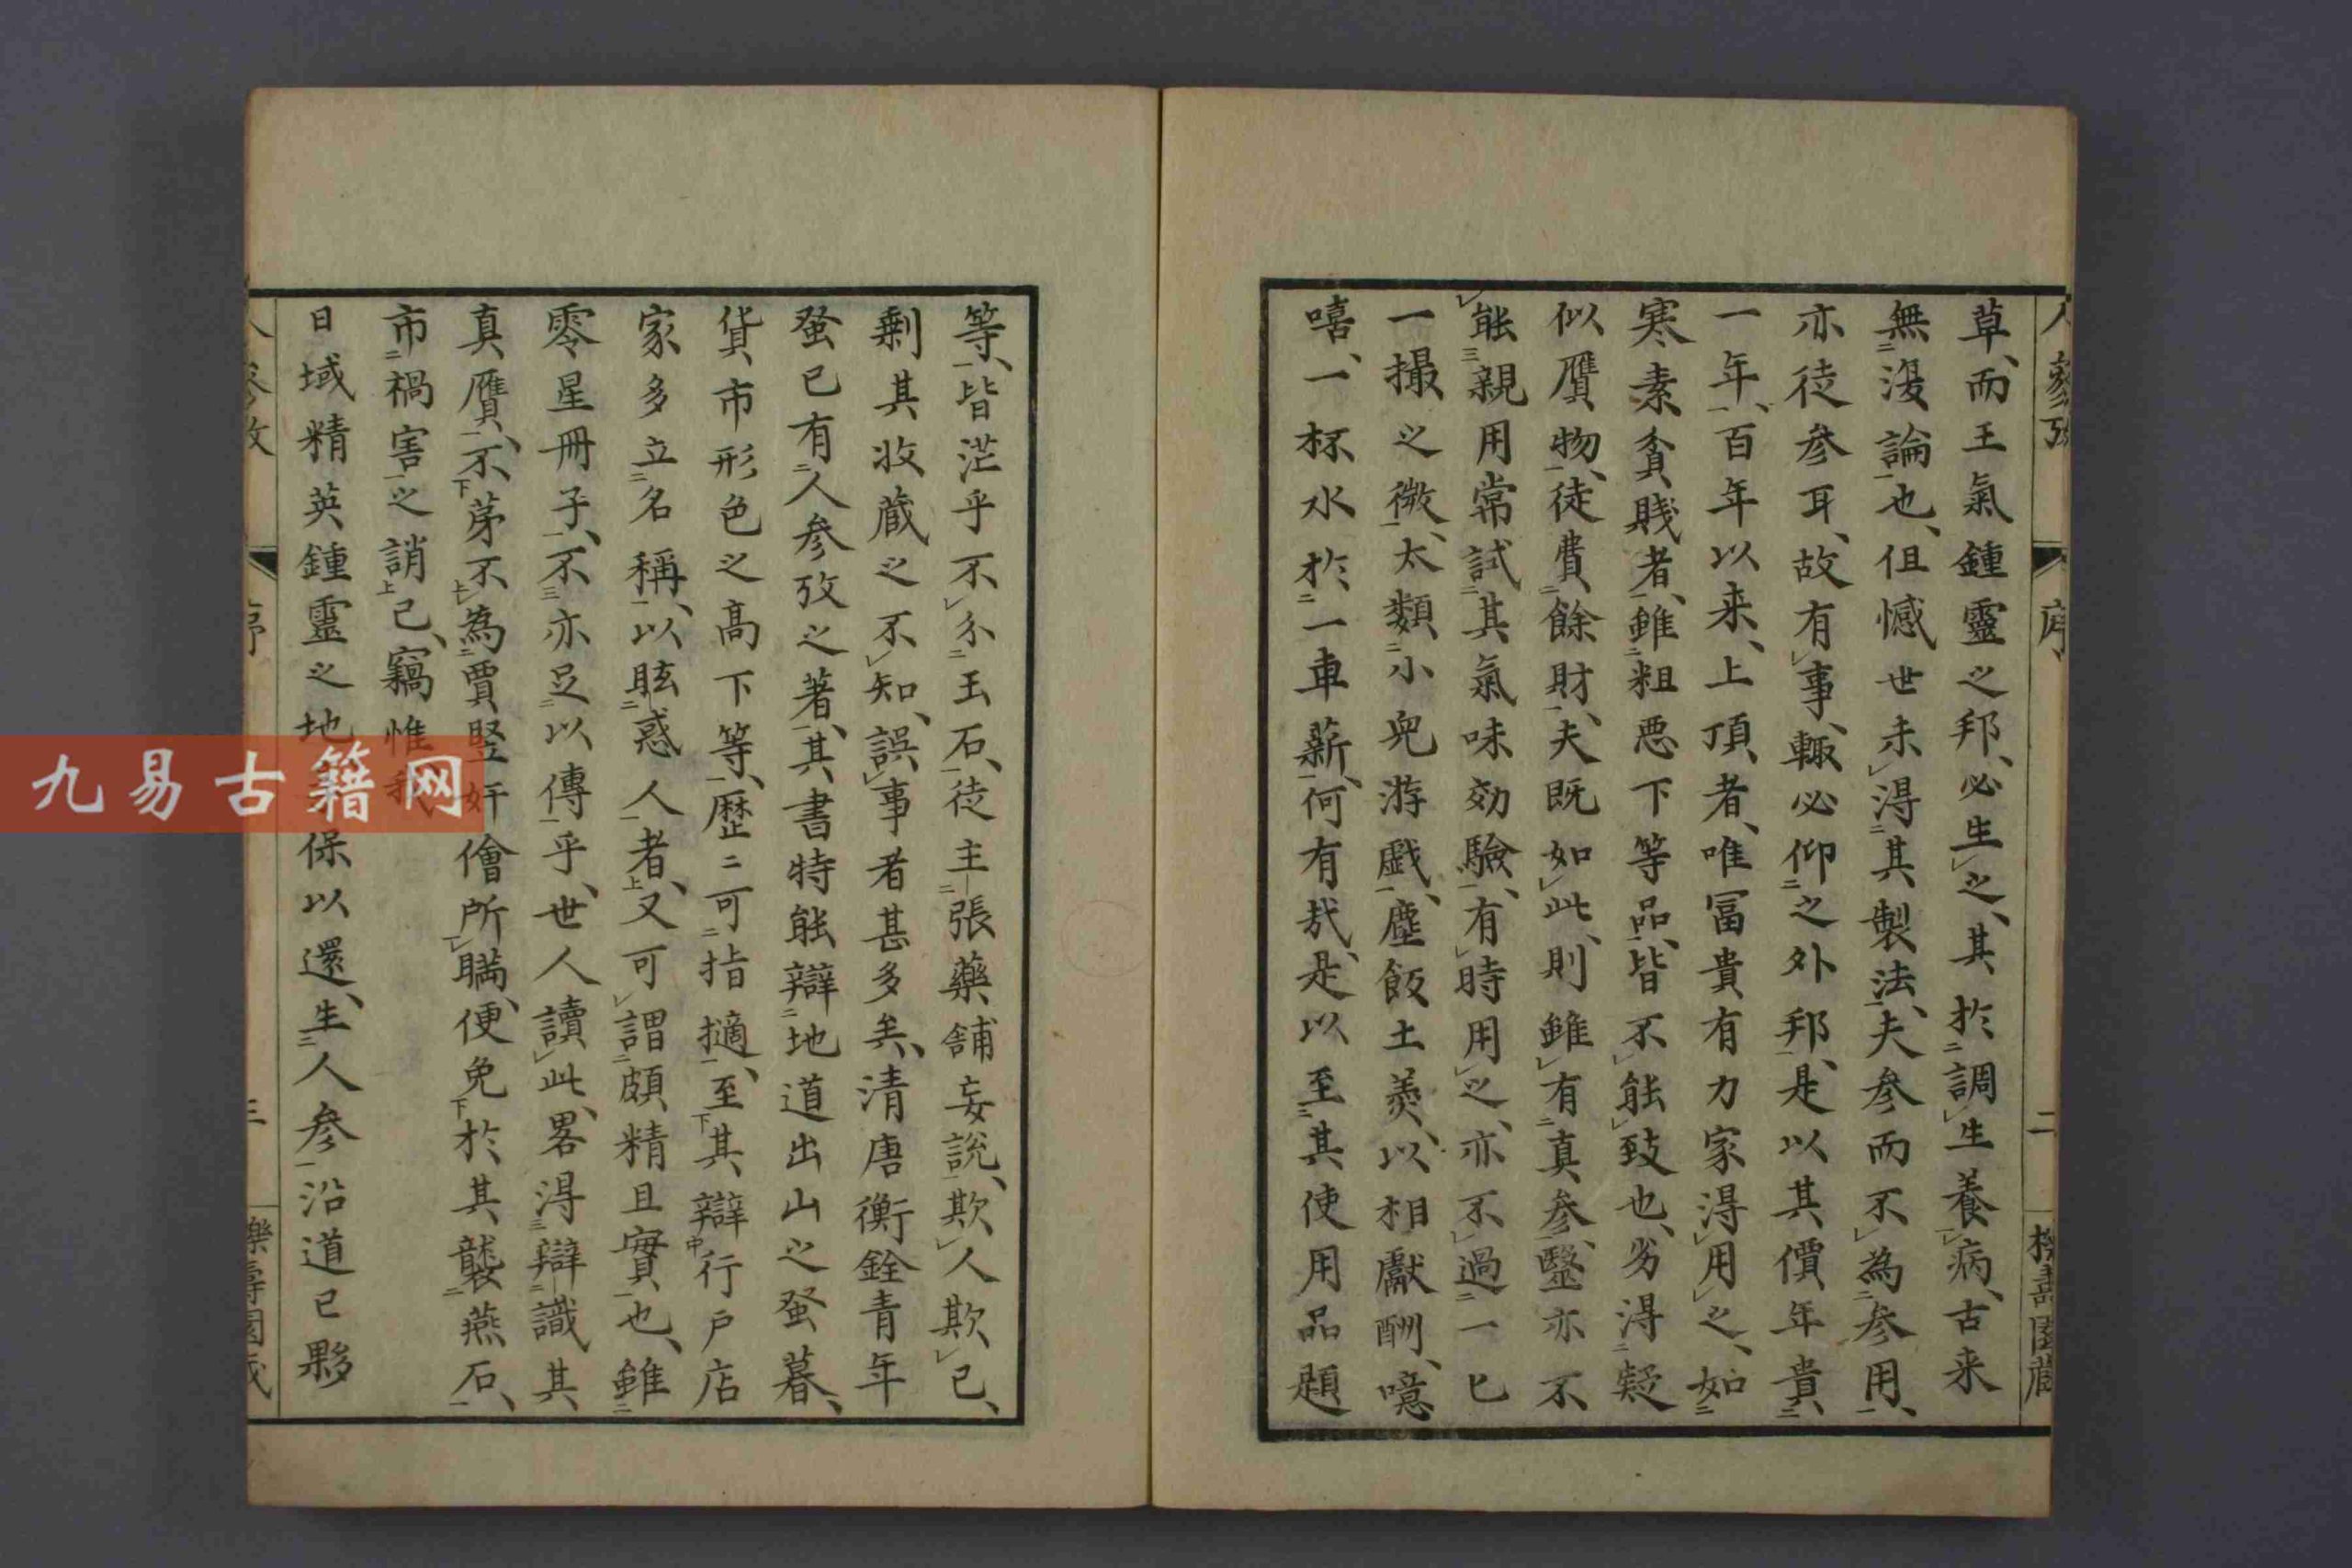 人參攷 序 二
草、而王氣鍾靈之邦、必生之、其於調生養病、古来
無復論也、但憾世未得其製法、夫參而不為參用、
亦徒參耳、故有事、輙必仰之外邦、是以其價年貴
一年、百年以来、上頂者、唯冨貴有力家得用之、如
寒素貧賎者、雖粗悪下等品、皆不能致也、劣得疑
似贋物、徒費餘財、夫既如此、則雖有真參、毉亦不
能親用常試其氣味効驗、有時用之、亦不過一匕
一撮之微、太類小兒游戯、塵飯土羮、以相獻酬、噫
嘻、一杯水於一車薪、何有哉、是以至其使用品題
等、皆茫乎不分玉石、徒主張藥舖妄說、欺人欺己、
剰其收蔵之不知、誤事者甚多矣、清唐衡銓青年
蚤已有人參攷之著、其書特能辯地道出山之蚤暮、
貨市形色之高下等、歴二可指擿、至其辯行戸店
家多立名稱、以眩惑人者、又可謂頗精且實也、雖
零星冊子、不亦足以傳乎、世人讀此、畧得辯識其
真贋、不苐不為賈竪奸儈所瞞、便免於其襲燕石、
市禍害之誚已、竊惟我
日域精英鍾靈之地 保以還、生人參沿道已夥
序 三
九易古籍网